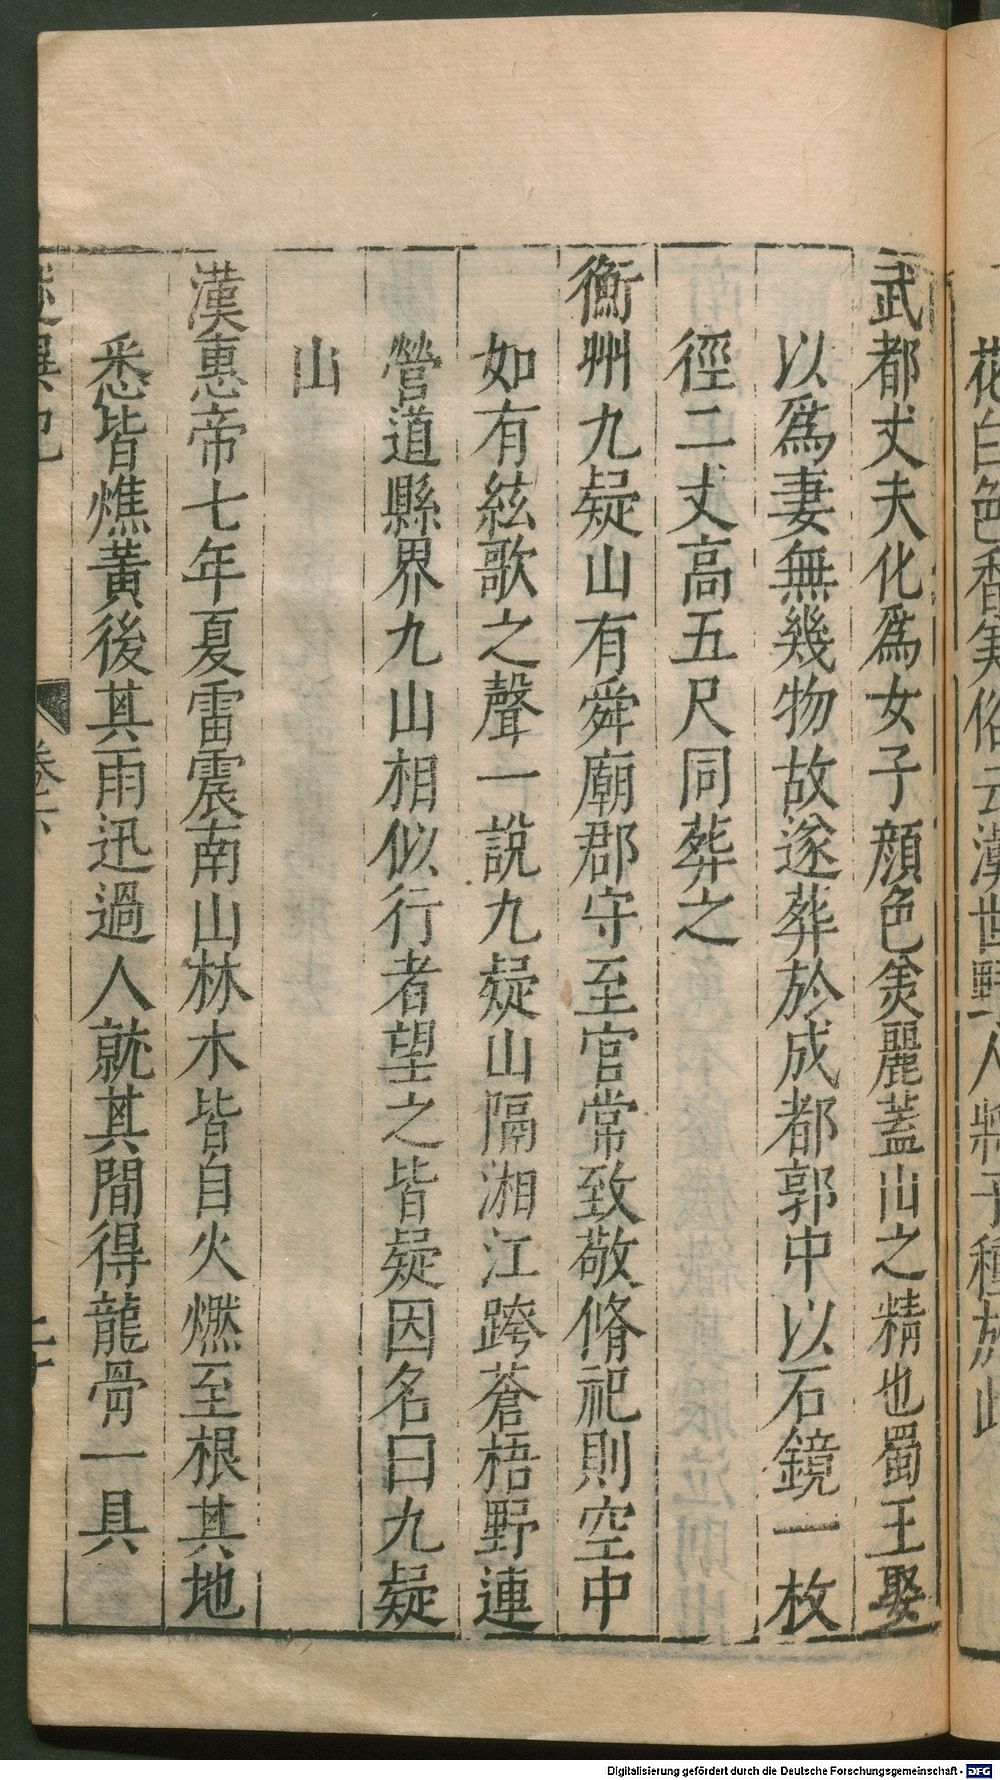 花白色香美俗云漢世野人將子種於此
武都丈夫化爲女子顔色美麗蓋山之精也蜀王娶
以爲妻無幾物故遂葬於成都郭中以石鏡一枚
徑二丈高五尺同葬之
衡州九疑山有舜廟郡守至官常致敬脩祀則空中
如有絃歌之聲一說九疑山隔湘江跨蒼梧野連
營道縣界九山相似行者望之皆疑因名曰九疑
山
漢惠帝七年夏雷震南山林木皆自火燃至根其地
悉皆燋黃後其雨迅過人就其間得龍骨一具
述異記
卷下
Digitalisierung gefördert durch die Deutsche Forschungsgemeinschaft - DFG